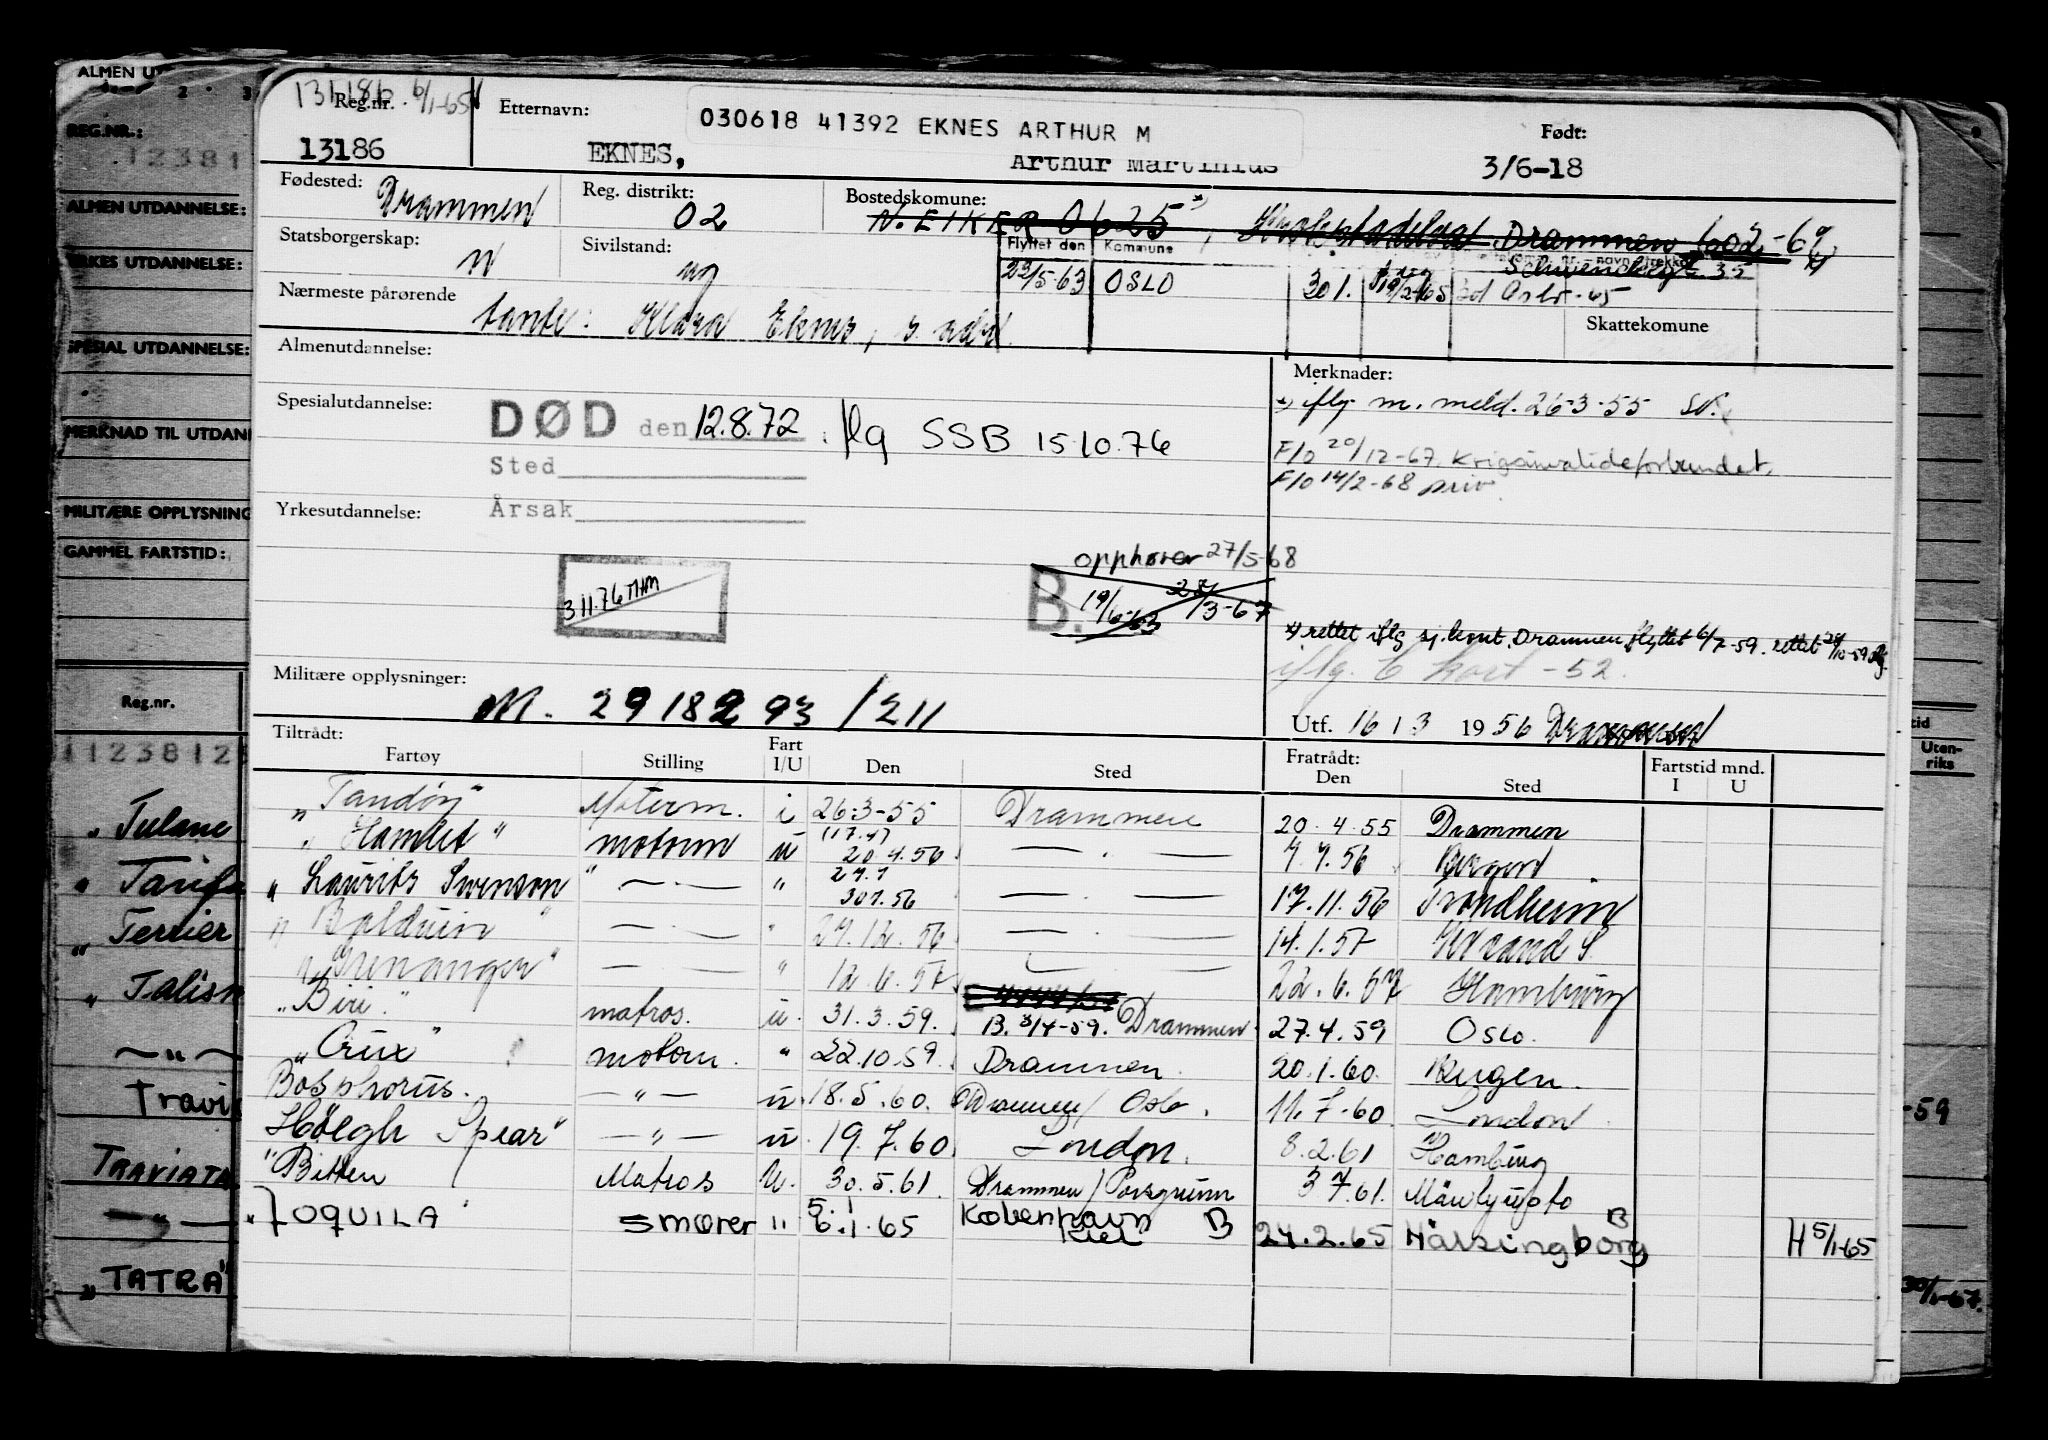 13186 6/1-65
Reg.nr.
13186
Etternavn:
030618 41392 EKNES ARTHUR M
EKNES, Arthur Martinius
Født:
3/6-18
Fødested: Drammen
Reg. distrikt: 02
Bostedskomune:
N. EIKER 0625 x) , Drammen 602 -
Schwenckegt. 35
Statsborgerskap: N
Sivilstand: ug
Flyttet den Kommune
23/5-63 OSLO 301.
Skattekomune
Nærmeste pårørende
tante: Klara Eknes, s. adr.
Almenutdannelse:
Spesialutdannelse:
DØD den 12.8.72 flg SSB 15.10.76
Sted
Årsak
Yrkesutdannelse:
3.11.76
opphører 27/5-68
B. 19/ 3-67
Merknader:
x) iflg. m. meld. 26-3-55
F/o 20/12-67. Krigsinvalideforbundet.
F/o 14/2-68 priv.
x) rettet iflg sj. kont. Drammen, flyttet 6/7-59. rettet
iflg. 6 kort -52.
Militære opplysninger:
M. 2918293/211
Utf. 16 / 3 1956 Drammen
Tiltrådt:
Fartøy Stilling Fart I/U Den Sted
Fratrådt: Den Sted Fartstid mnd. I U
"Tandöy" Moterm. i 26-3-55 Drammen 20.4.55 Drammen
"Hamlet" motorm u (17.4) 20.4.56 — " — 7.7.56 Bergen
"Laurits Swenson — " — " 30.7.56 — " — 17.11.56 Trondheim
"Balduin" — " — " 29.12.56 — " — 14.1.57 Kr.sand S
"Grenanger" — " — " 12.6.57 — " — 22.6.57 Hamburg
"Biri" matros. u. 31.3.59. B. 3/4-59. Drammen 27.4.59 Oslo.
"Crux" motorm. " 22.10.59. Drammen. 20.1.60. Bergen.
Bosphorus. — " — u. 18.5.60. Drammen/Oslo. 11.7.60 London
Höegh Spear" — " — u. 19.7.60 London. 8.2.61 Hamburg
"Bitten Matros U. 30.5.61. Drammen/Porsgrunn 3 7.61. Mäntyluoto
TOQUILA smører " 5.1 6.1.65 København Kiel B 24.2.65 Hälsingborg B H 5/1-65
ALMEN
REG.NR.:
12381
ALMEN UTDANNELSE:
YRKES UTDANNELSE:
SPESIAL UTDANNELSE:
MERKNAD TIL UTDANN
MILITÆRE OPPLYSNING
GAMMEL FARTSTID:
Reg.nr.
1123812
"Tulane
" Tarifa
" Terrier
" Talism
— " —
Travi
TRAVIATA
— " —
"TATRA"
tid
Uten-
riks
-59
30/1-67.